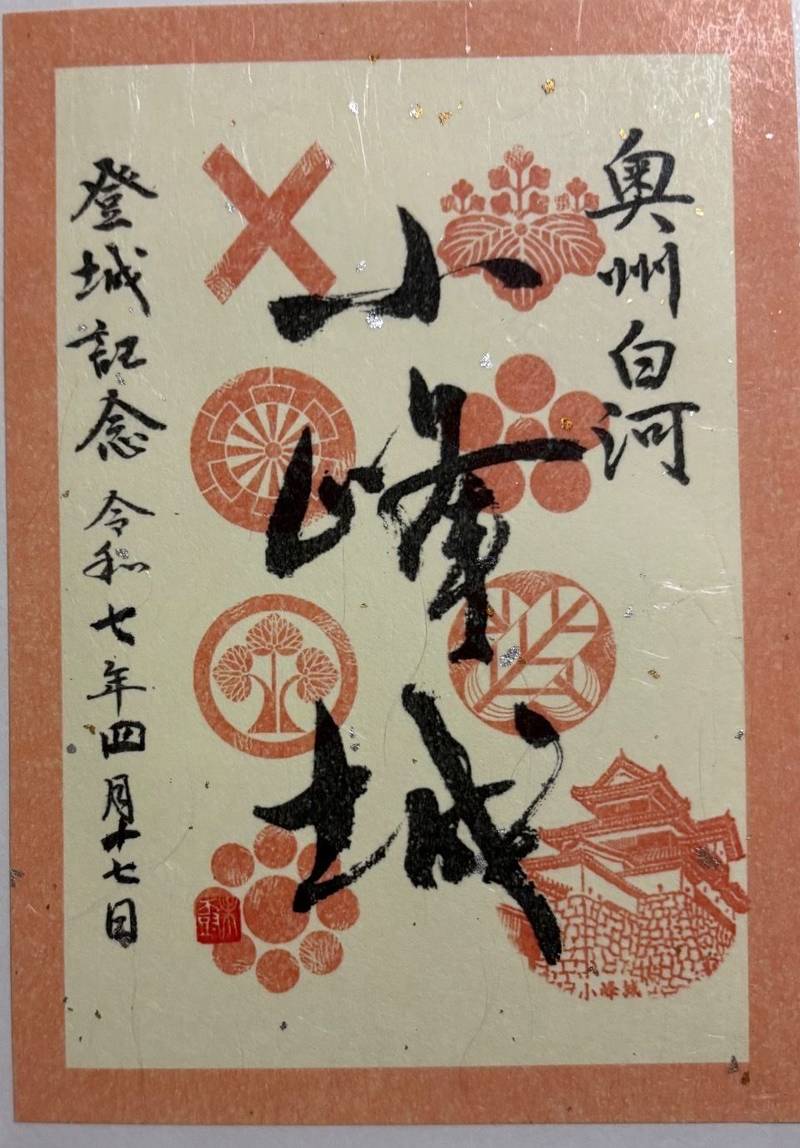 奥州白河
小峰城
登城記念 令和七年四月十七日
小峰城